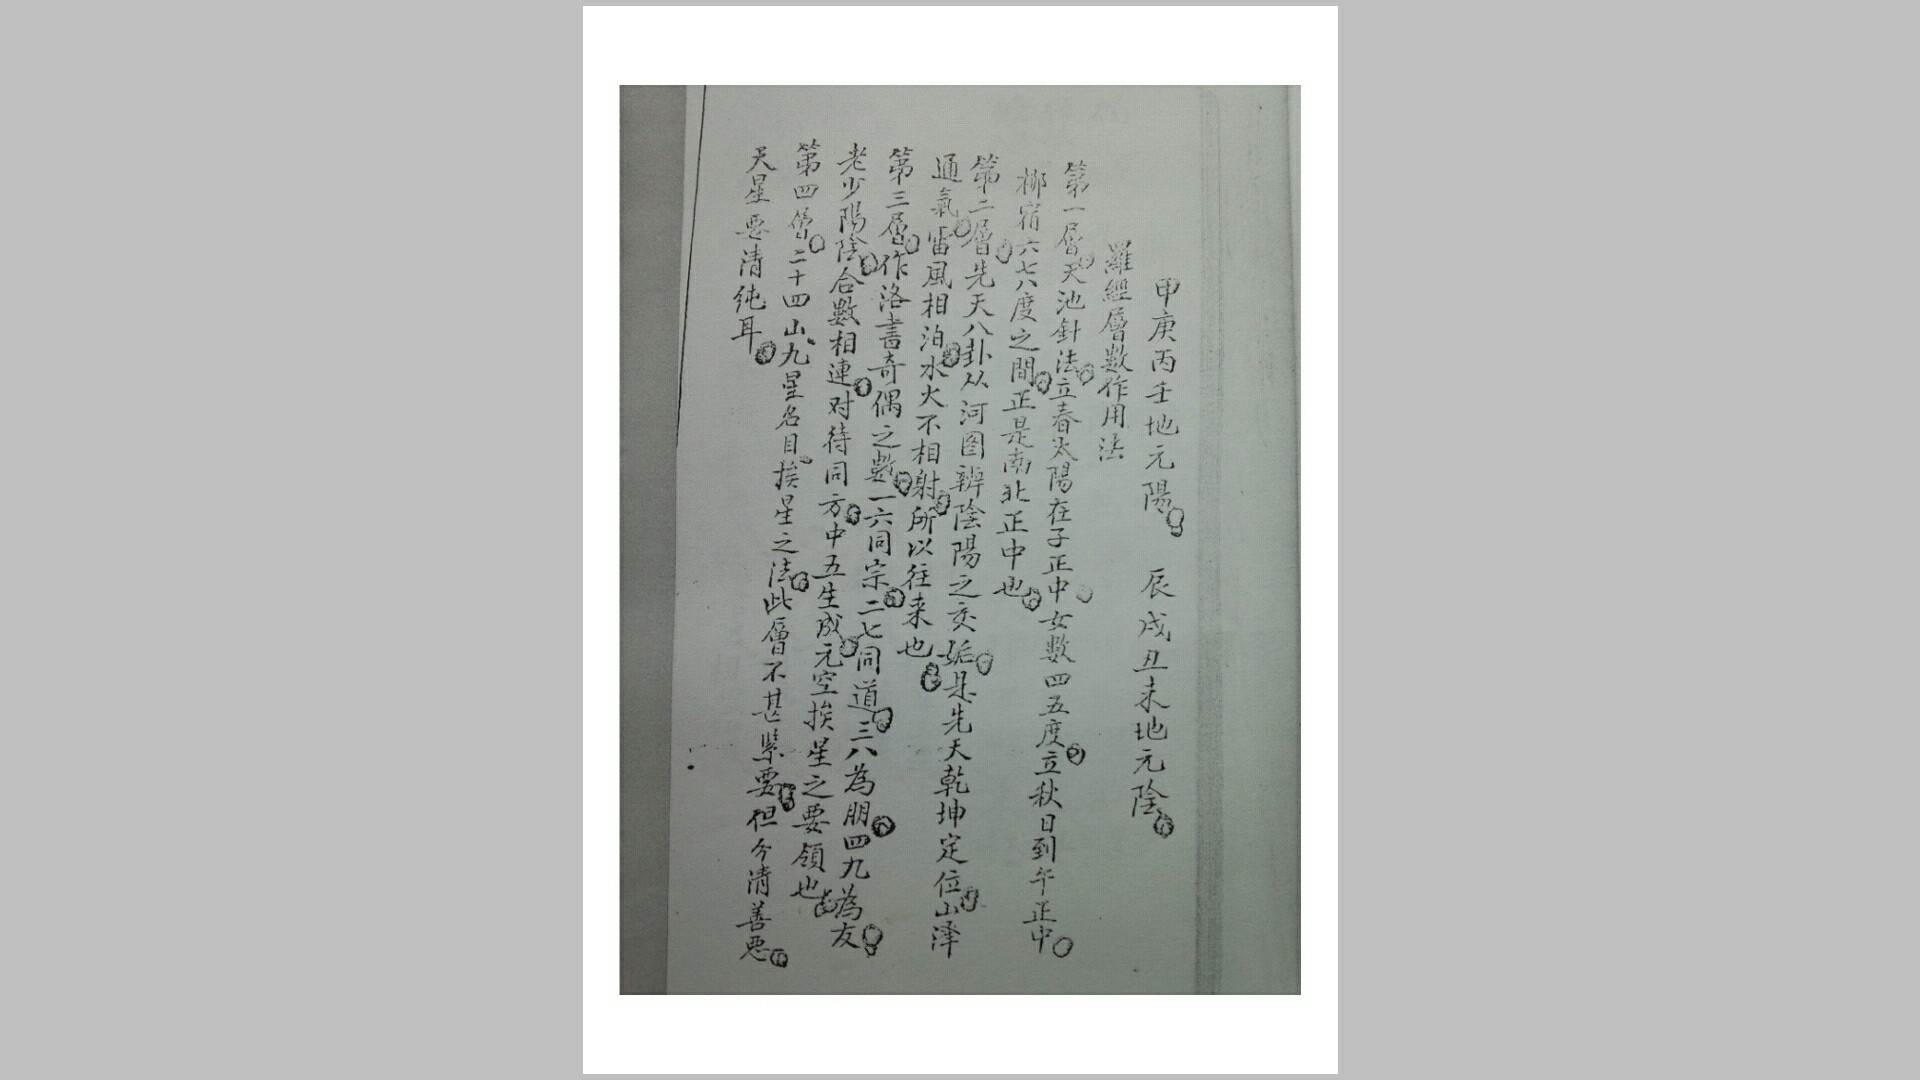 甲庚丙壬地元陽 辰戌丑未地元陰
羅經層數作用法
第一層天池針法立春太陽在子正中女數四五度立秋日到午正中
柳宿六七八度之間正是南北正中也
第二層先天八卦从河图辨陰陽之交姤是先天乾坤定位山泽
通氣雷風相泊水火不相射所以往来也
第三層作洛書奇偶之數一六同宗二七同道三八為朋四九為友
老少陽陰合數相連对待同方中五生成元空挨星之要領也
第四層二十四山九星名目挨星之法此層不甚緊要但今清善恶
天星要清纯耳